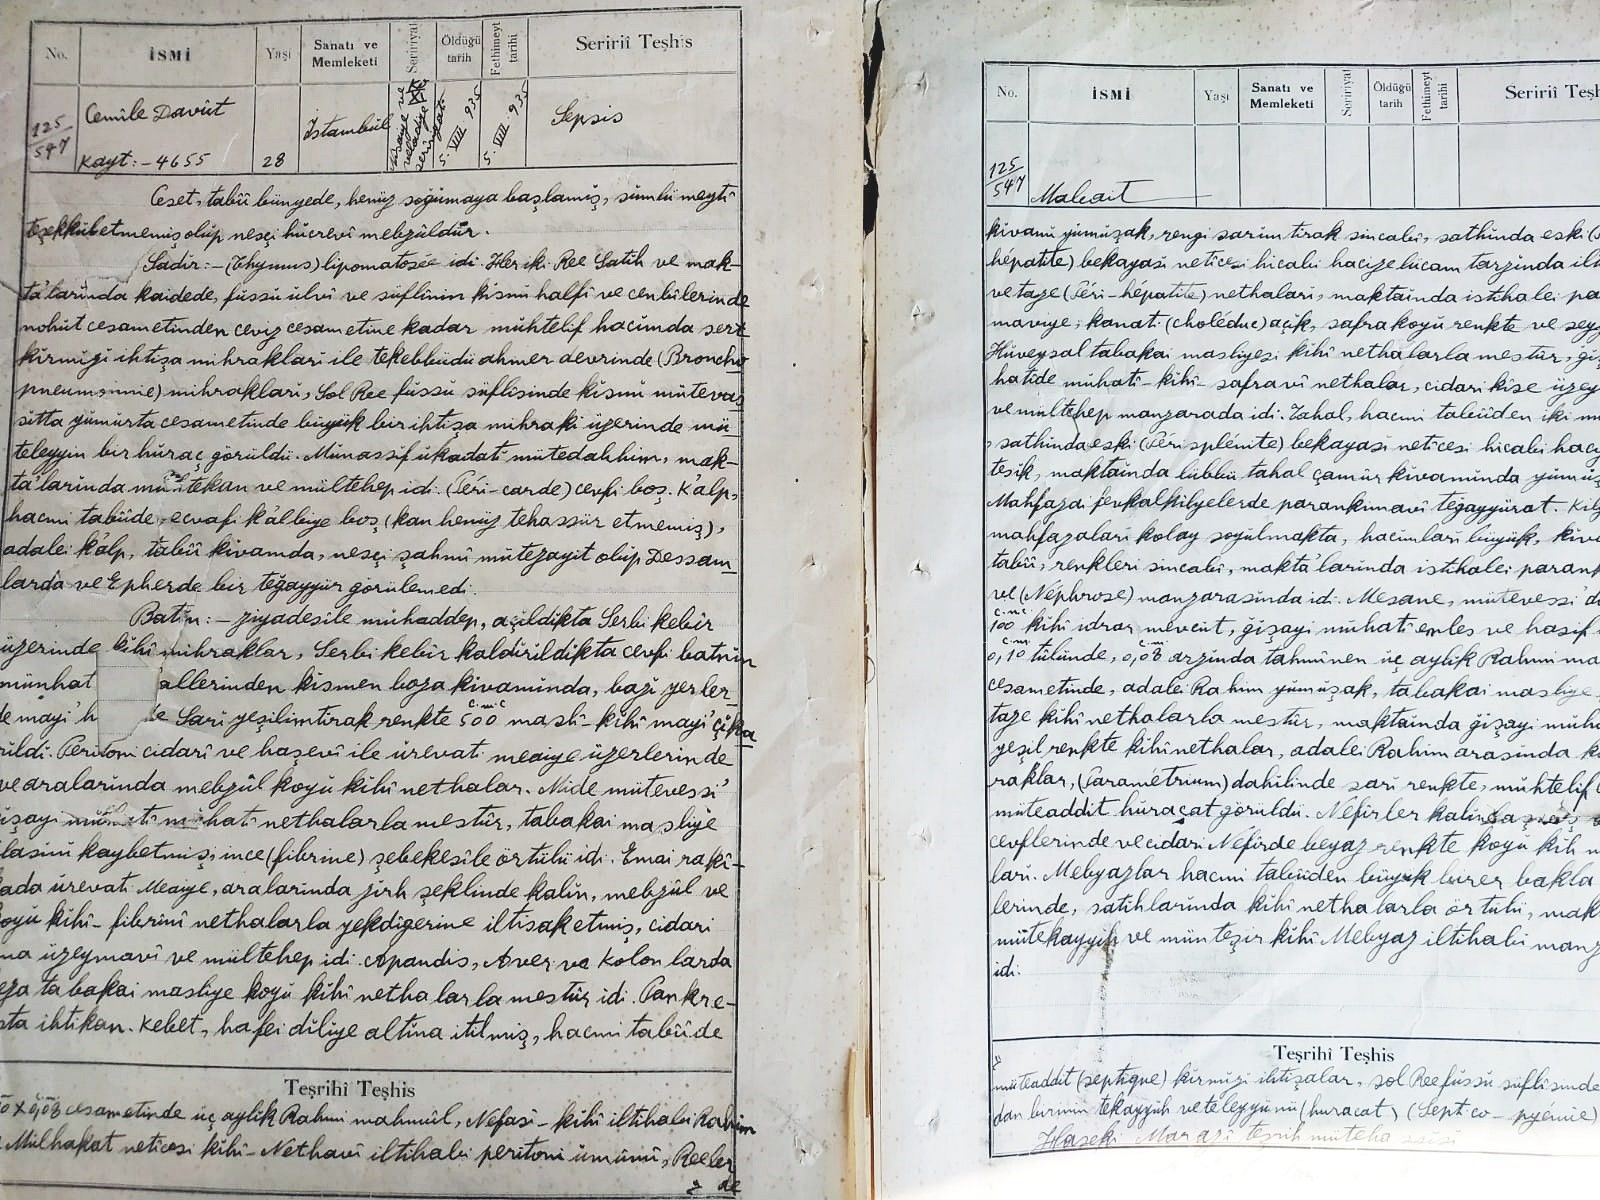 No.
İSMİ
Yaşı
Sanatı ve
Memleketi
Seririyat
Öldüğü
tarih
Fethimeyt
tarihi
Seririî Teşhis
125/547
Cemile Davût
Kayt:- 4655
28
İstambûl
5. VIII. 935
5. VIII. 935
Sepsis
Ceset, tabiî bünyede, henüz soğumaya başlamış, sümlü meytî
teşekkül etmemiş olup nesci hücrevî mebzûldür.
Sadir:- (Thymus) lipomatosée idi. Her iki Ree Satih ve mak-
ta'larında kaidede, füssü ulvî ve süflinin kısmı halfî ve cenbîlerinde
nohut cesametinden ceviz cesametine kadar mühtelif hacimda sert
kirmizi ihtişa mihrakları ile tekebbüdü ahmer devrinde (Broncho
pneumonie) mihrakları, Sol Ree füssü süflisinde kısmı mütevas
sitta yümürta cesametinde büyük bir ihtişa mihraki üzerinde mü
teleyyin bir hüraç görüldü. Münassif ükadatî mütedahhim, mak-
ta'larında mühtekan ve mültehep idi. (Péri-carde) cevfi boş. Kalp,
hacmi tabiide, ecvafi kalbiye boş (kan henüz tehassür etmemiş),
adalei kalp, tabiî kivamda, nesci şahmî mütezayit olup Dessam
larda ve Epherde bir teğayyür görülemedi.
Batin:- ziyadesile mühaddep, açıldikta Serbi kebîr
üzerinde kihî mihraklar, Serbi kebîr kaldirildikta cevfi batnin
münhat allerinden kismen boza kivaminda, bazi yerler
de mayi' h de Sari yeşilimtirak renkte 500 cmc maslî-kihî mayi' çika
rıldı. Peritoni cidarî ve haşevî ile ürevati meaiye üzerlerinde
ve aralarinda mebzûl koyu kihî nethalar. Mide mütevessi'
ğişayi mühatî mühatî nethalarla mestûr, tabakai masliye
lasini kaybetmiş, ince (fibrine) şebekesile örtülü idi. Emai rakî-
kada ürevati Meaiye, aralarinda zirh şeklinde kalin, mebzûl ve
koyu kihî-fibrinî nethalarla yekdigerine iltisak etmiş, cidari
ma üzeymavî ve mültehep idi. Apandis, Aver ve Kolonlarda
keza tabakai masliye koyu kihî nethalarla mestûr idi. Pankre-
sta ihtikan. Kebet, hafei diliye altina itilmiş, hacmi tabiide
Teşrihî Teşhis
0 x 0,08 cesametinde üç aylik Rahmi mahmûl, Nefasî-kihî iltihabi Rahim
Mülhakat neticesi kihî-Nethavî iltihabi peritoni ümumî, Reeler
de
No.
İSMİ
Yaşı
Sanatı ve
Memleketi
Seririyat
Öldüğü
tarih
Fethimeyt
tarihi
Seririî Teşh
125/547
Mabait
kivami yümüşak, rengi sarimtirak sincabî, sathinda eski
hépatite) bekayasi neticesi hicabi hacize lücam tarzinda ilt
ve taze (Péri-hépatite) nethalari, maktainda istihalei pa
maviye, kanat (cholédue) açik, safra koyu renkte ve sey
Hüveysal tabakai masliyesi kihî nethalarla mestûr, ği
hatide mühatî-kihî-safravî nethalar, cidari kîse üzey
ve mültehep manzarada idi. Tahal, hacmi tabiiden iki m
sathinda eski (Périsplénite) bekayasi neticesi hicabi haci
tesik, maktainda lübbü tahal çamür kivaminda yümüş
Mahfazai fevkalkilyelerde parankimavî teğayyürat. Kily
mahfazalari kolay soyulmakta, hacimlari büyük, kiva
tabiî, renkleri sincabî, makta'larinda istihalei parank
ve (Néphrose) manzarasinda idi. Mesane, mütevessi' d
100 cmc kihî idrar mevcut, ğişayi mühatî emles ve hasif
0,10 cm tülünde, 0,08 cm arzinda tahminen üç aylik Rahmi ma
cesametinde, adalei Rahim yümüşak, tabakai masliye
taze kihî nethalarla mestûr, maktainda ğişayi müha
yeşil renkte kihî nethalar, adalei Rahim arasinda k
raklar, (Paramétrium) dahilinde sari renkte, mühtelif
müteaddit hüraçat görüldü. Nefirler kalin
cevflerinde ve cidari Nefirde beyaz renkte koyu kih n
lari. Mebyazlar hacmi tabiiden büyük birer bakla
lerinde, satihlarinda kihî nethalarla örtülü, mak
mütekayyih ve münteşir kihî Mebyaz iltihabi manz
idi.
Teşrihî Teşhis
müteaddit (septique) kirmizi ihtişalar, sol Ree füssü süflisinde
dan birinin tekayyüh ve teleyyünü (huracat) (Septico-pyémie)
Haseki Marazî teşrih mütehassisi